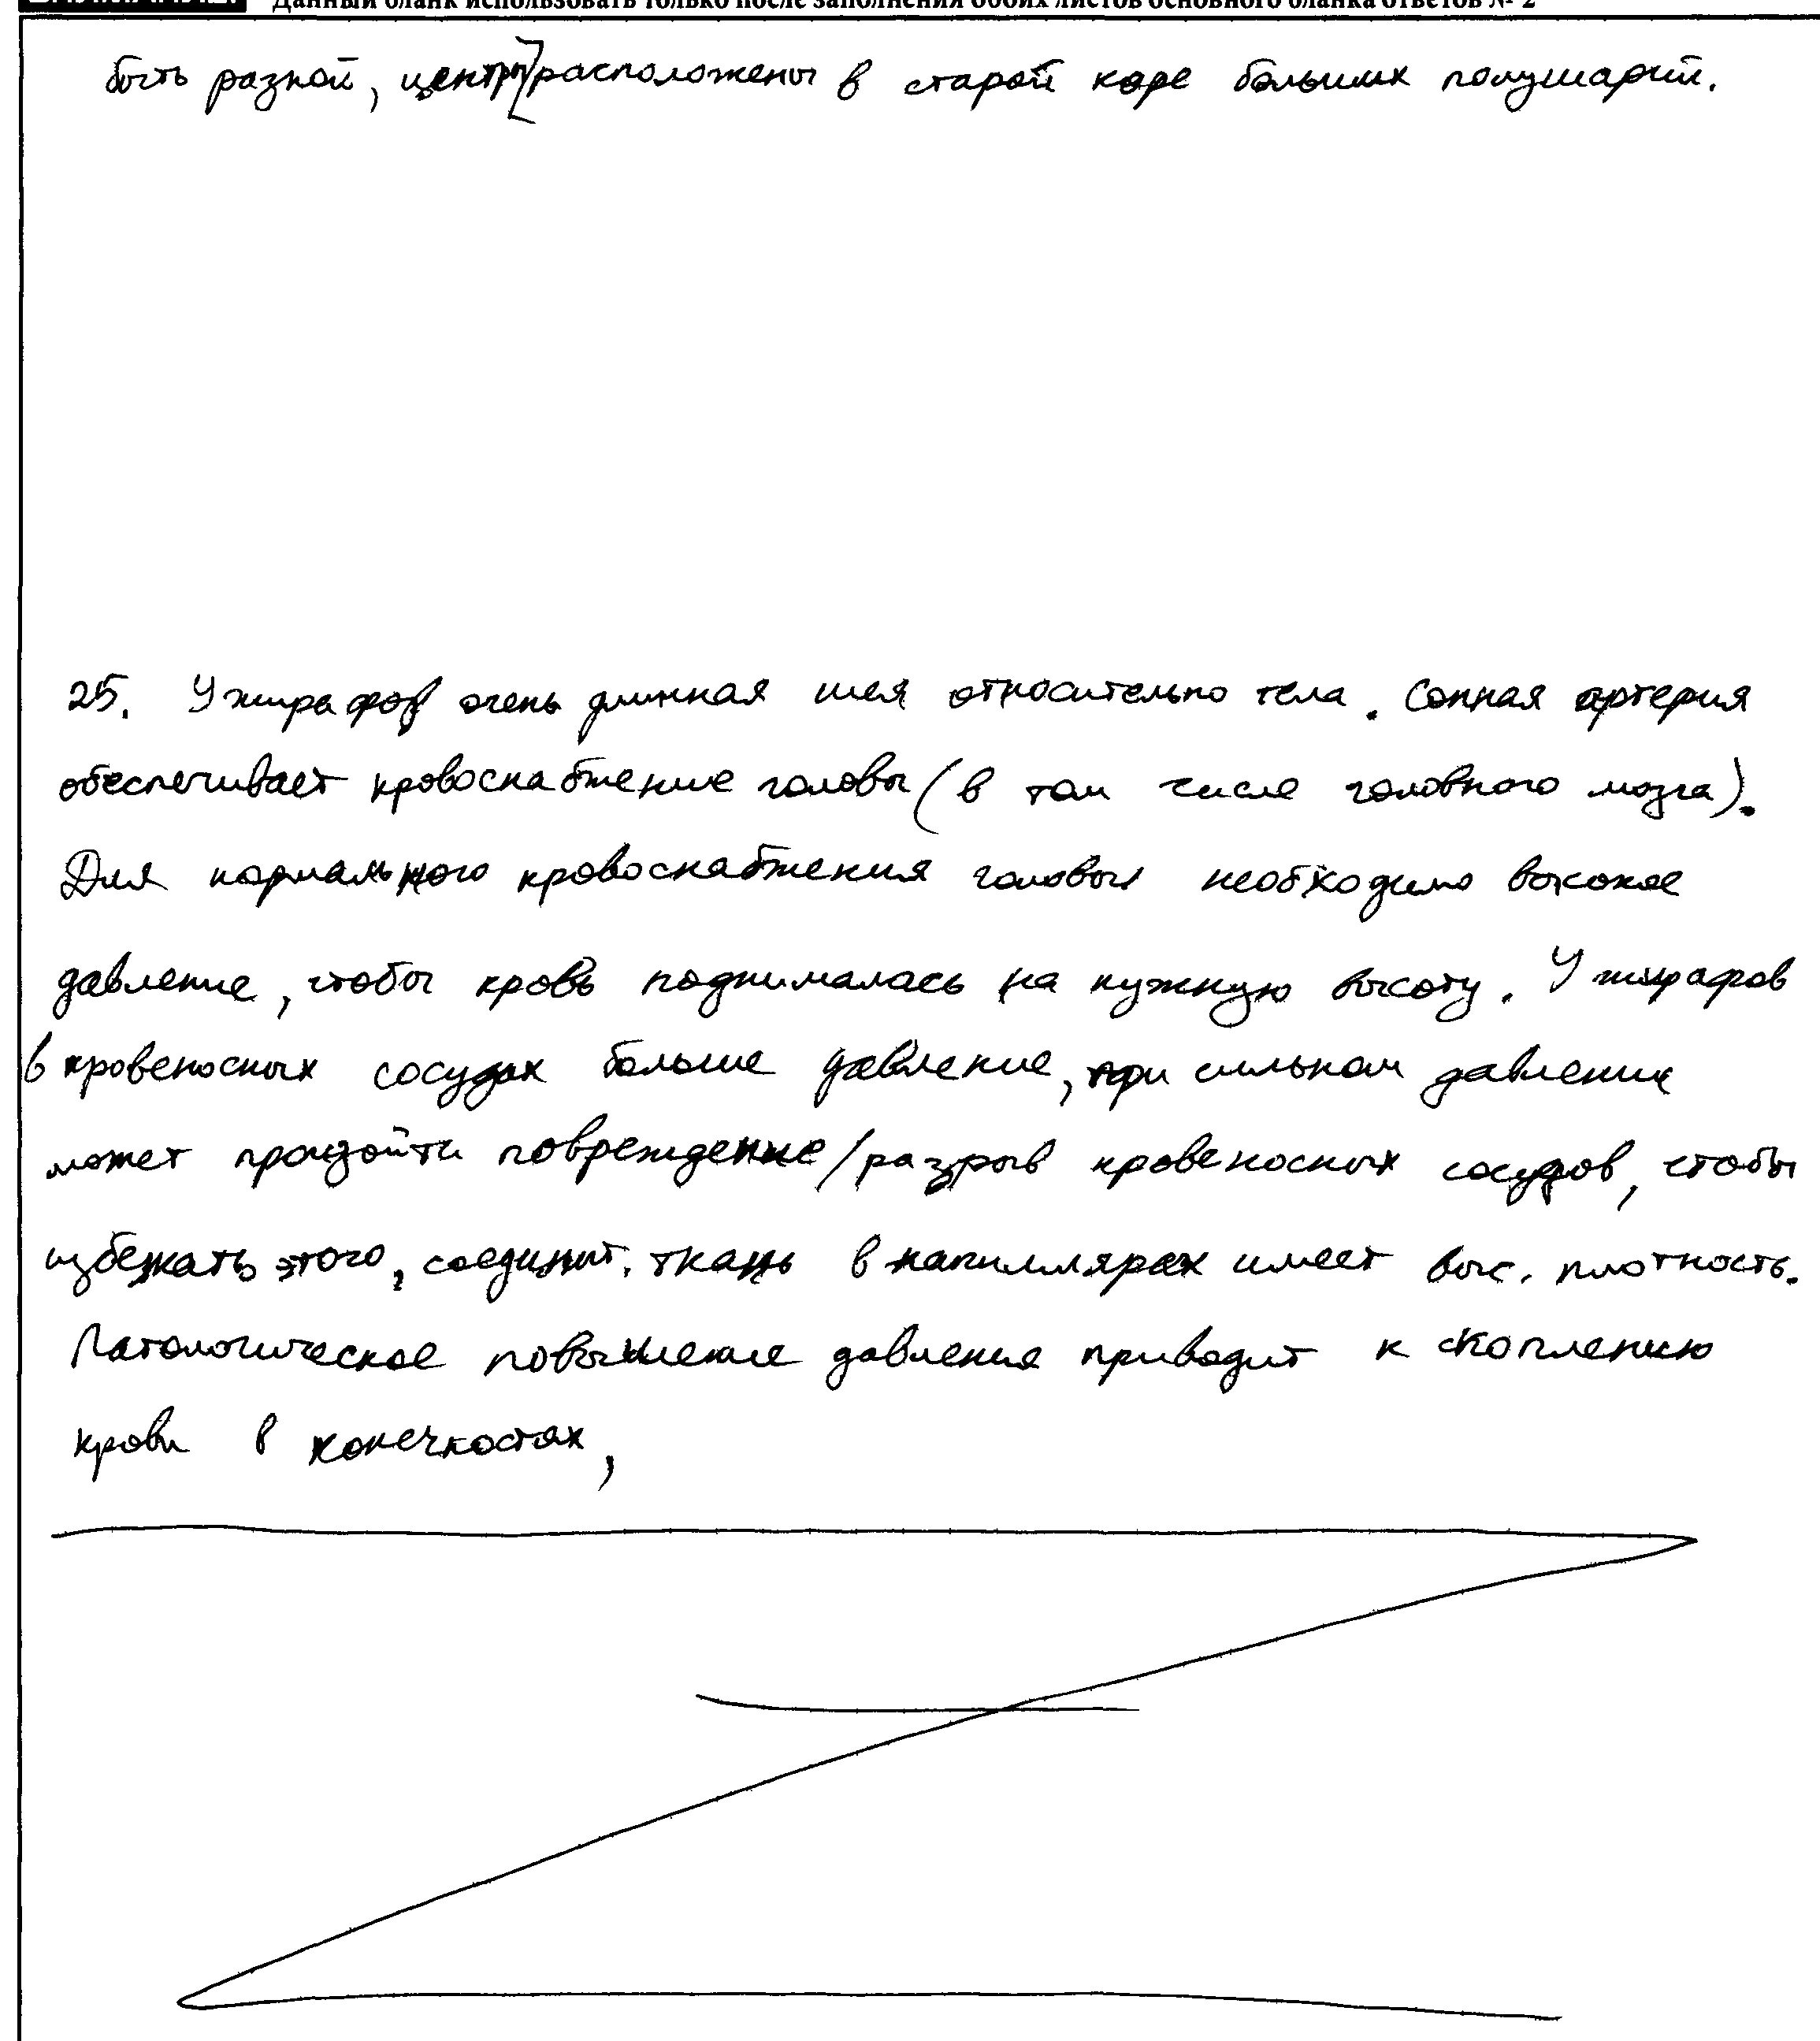 Данный бланк использовать только после заполнения обоих листов основного бланка ответов № 2
быть разной, центры расположены в старой коре больших полушарий.
25. У жирафов очень длинная шея относительно тела. Сонная артерия
обеспечивает кровоснабжение головы (в том числе головного мозга).
Для нормального кровоснабжения головы необходимо высокое
давление, чтобы кровь поднималась на нужную высоту. У жирафов
в кровеносных сосудах больше давление, при сильном давлении
может произойти повреждение/разрыв кровеносных сосудов, чтобы
избежать этого, соединит. ткань в капиллярах имеет выс. плотность.
Патологическое повышение давления приводит к скоплению
крови в конечностях,